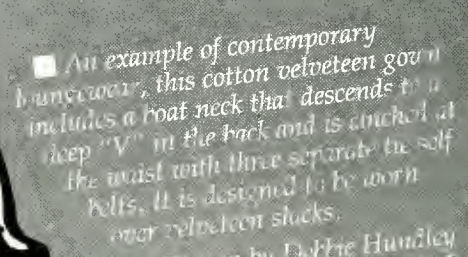 An example of contemporary
loungewear, this cotton velveteen gown
includes a boat neck that descends to a
deep "V" in the back and is cinched at
the waist with three separate tie self
belts. It is designed to be worn
over velveteen slacks.
by Debbie Hundley